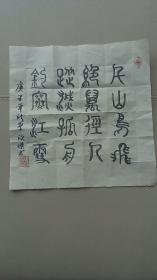 千山鳥飛
絕萬徑人
蹤滅孤舟
釣寒江雪
庚子年